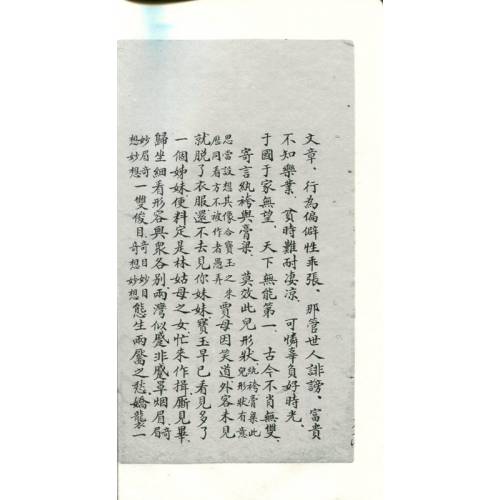 文章、行為偏僻性乖張、那管世人誹謗、富貴
不知樂業、貧時難耐凄涼、可憐辜負好時光、
于國于家無望、天下無能第一、古今不肖無雙、
寄言紈袴與膏粱、莫效此兒形狀、紈袴膏粱此兒形狀有意
思當設想其像合寶玉之来歷同看方不被作者愚弄賈母因笑道外客未見
就脱了衣服還不去見你妹妹寶玉早已看見多了
一個姊妹便料定是林姑母之女忙来作揖廝見畢
歸坐細看形容與衆各別兩灣似蹙非蹙罩烟眉奇眉
妙眉奇想妙想一雙俊目奇目妙目奇想妙想態生兩靨之愁嬌襲一